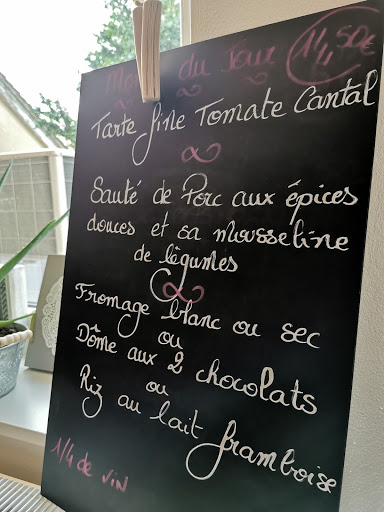 Menu du Jour 14,50€
Tarte fine Tomate Cantal
Sauté de Porc aux épices
douces et sa mousseline
de légumes
Fromage blanc ou sec
ou
Dôme aux 2 chocolats
ou
Riz au lait framboise
1/4 de vin